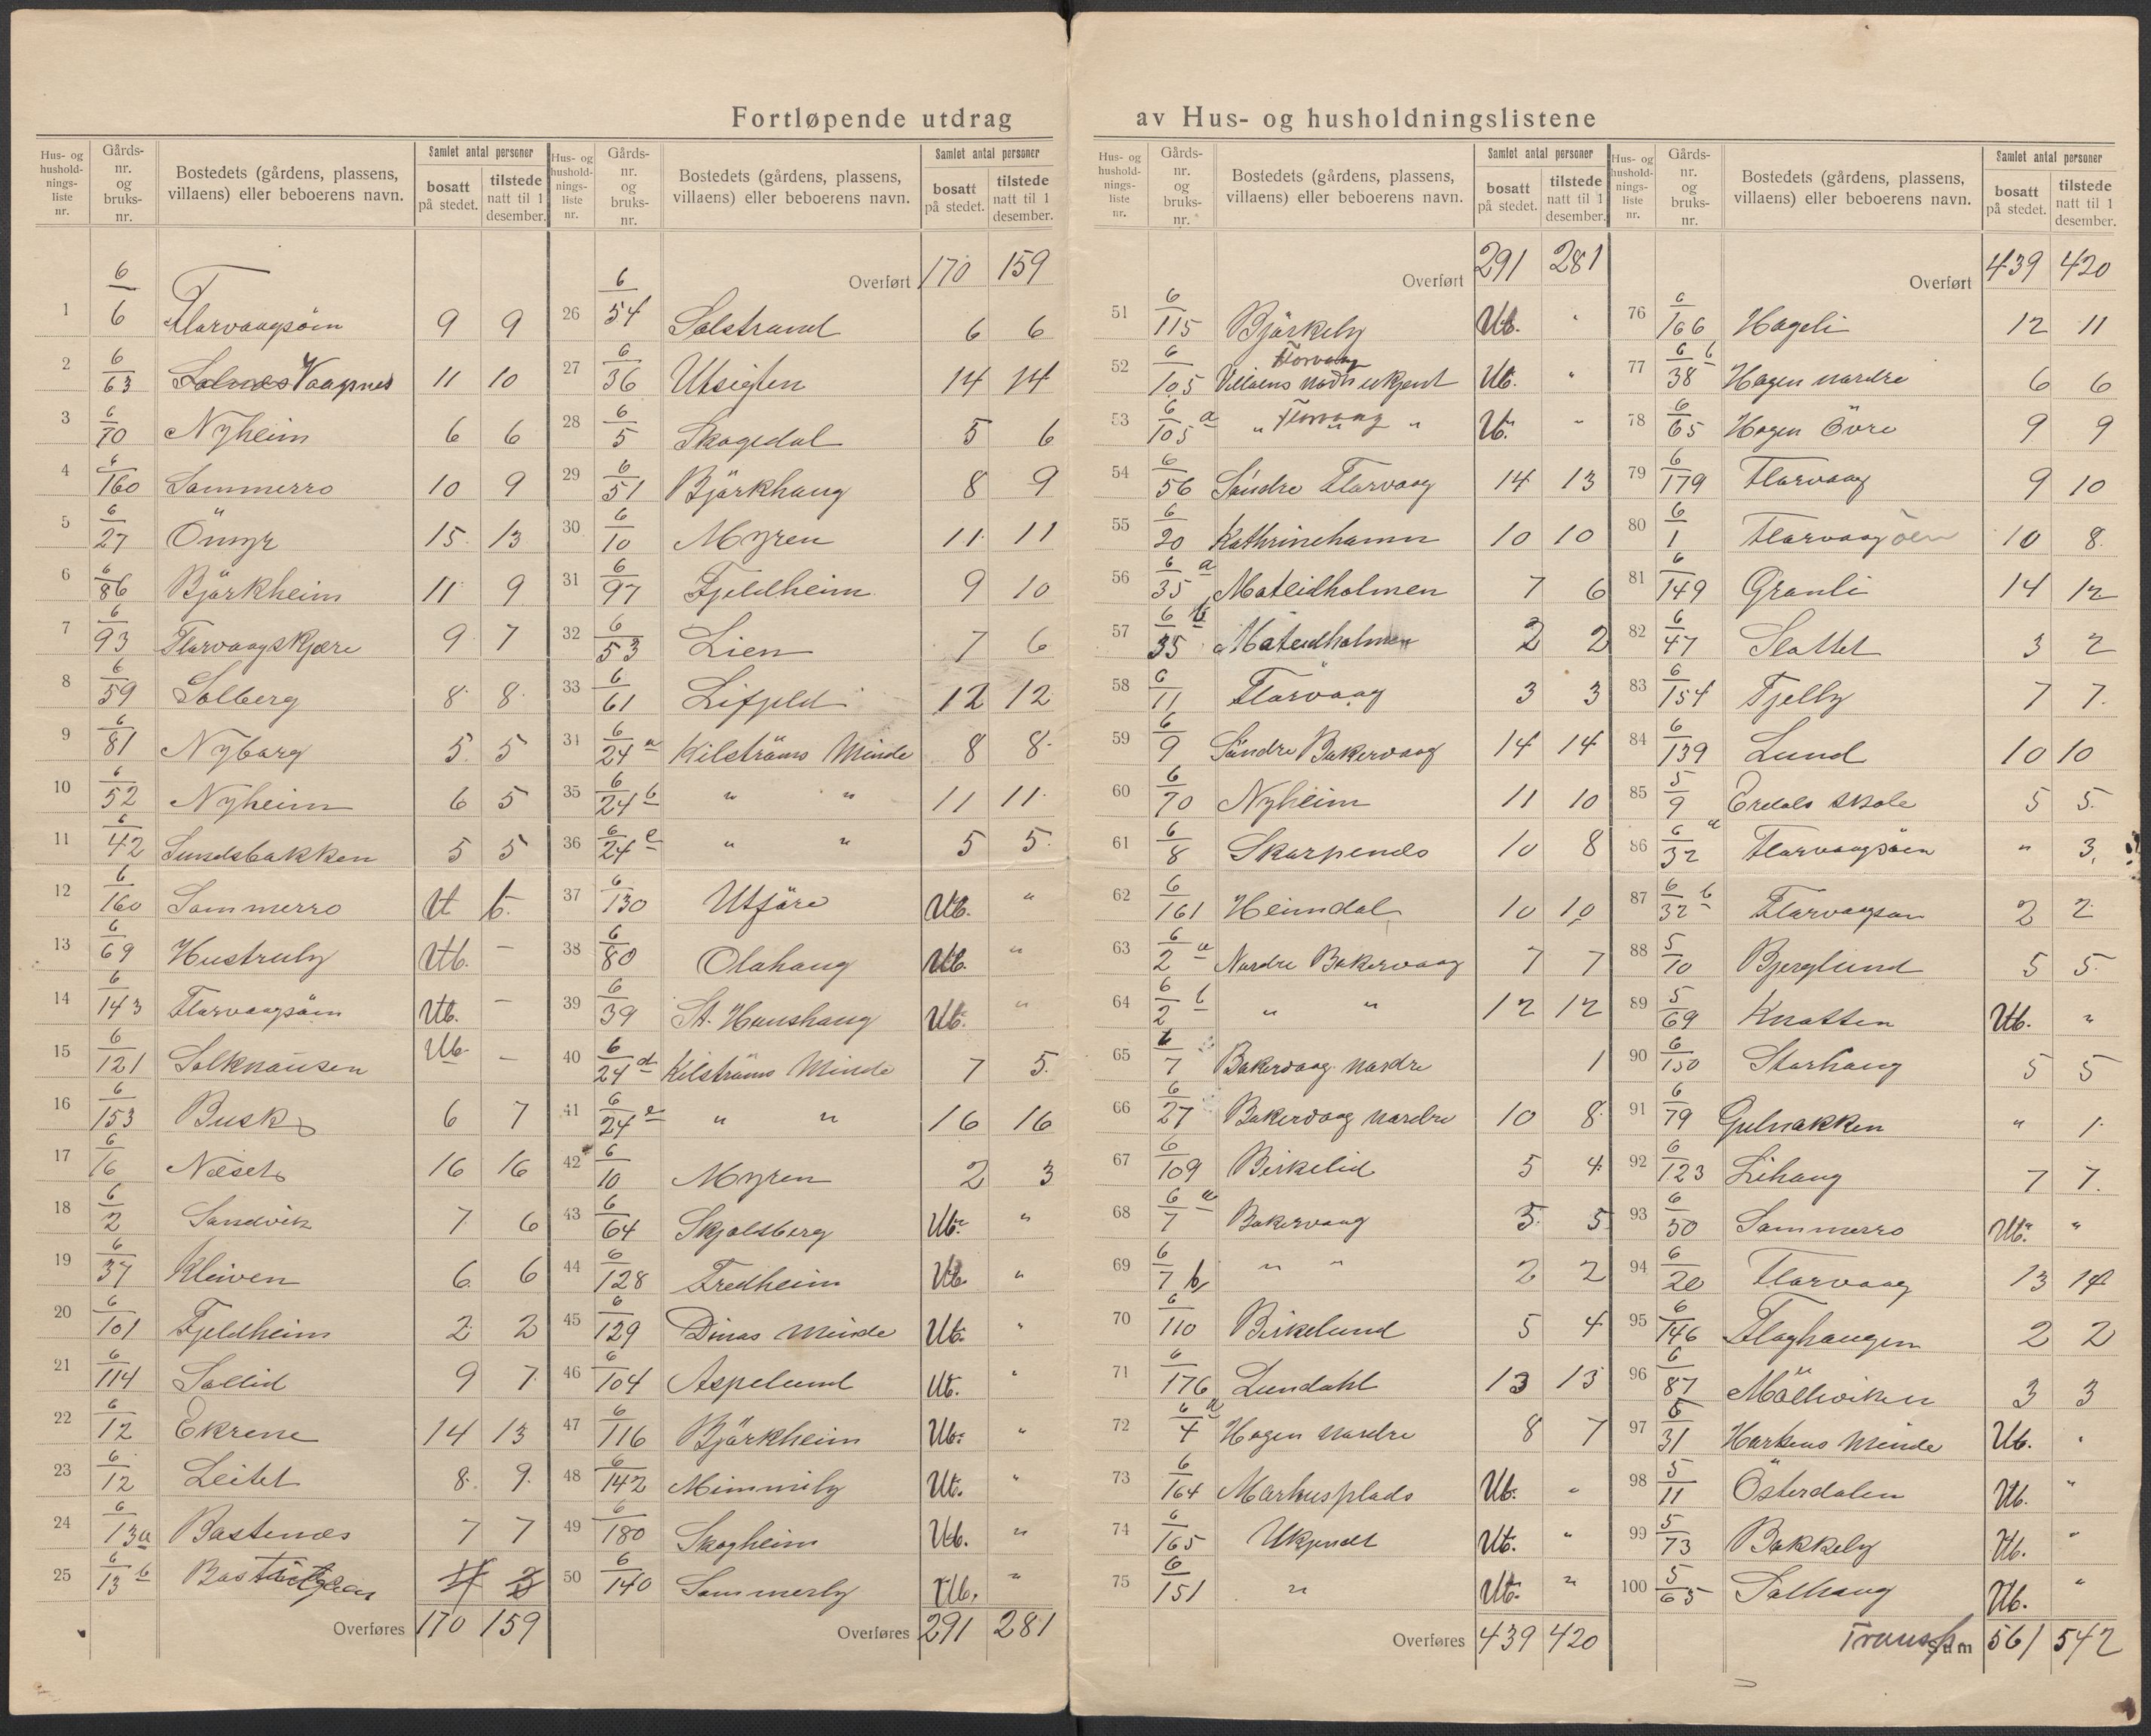 Fortløpende utdrag av Hus- og husholdningslistene
Hus- og husholdnings-liste nr. | Gårds-nr. og bruks-nr. | Bostedets (gårdens, plassens, villaens) eller beboerens navn. | Samlet antal personer | bosatt på stedet. | tilstede natt til 1 desember.
1 6/6 Florvaagsöin 9 9
2 6/63 Solnes Vaagnes 11 10
3 6/70 Nyheim 6 6
4 6/160 Sommerro 10 9
5 6/27 Önsyr 15 13
6 6/86 Björkheim 11 9
7 6/93 Florvaagskjære 9 7
8 6/59 Solberg 8 8
9 6/81 Nyborg 5 5
10 6/52 Nyheim 6 5
11 6/42 Sundsbakken 5 5
12 6/160 Sommerro Ub.
13 6/69 Hustruby Ub. –
14 6/143 Florvaagsöin Ub. –
15 6/121 Solknausen Ub. –
16 6/153 Busk 6 7
17 6/16 Næset 16 16
18 6/2 Sandvik 7 6
19 6/37 Kleiven 6 6
20 6/101 Fjeldheim 2 2
21 6/114 Sollid 9 7
22 6/12 Ekrene 14 13
23 6/12 Leitet 8 9
24 6/13a Bastenes 7 7
25 6/13 b
Overføres 170 159
Hus- og husholdnings-liste nr. | Gårds-nr. og bruks-nr. | Bostedets (gårdens, plassens, villaens) eller beboerens navn. | Samlet antal personer | bosatt på stedet. | tilstede natt til 1 desember.
Overført 170 159
26 6/54 Solstrand 6 6
27 6/36 Utsigten 14 14
28 6/5 Skogedal 5 6
29 6/51 Björkhaug 8 9
30 6/10 Myren 11 11
31 6/97 Fjeldheim 9 10
32 6/53 Lien 7 6
33 6/61 Lifjeld 12 12
34 6/24 a Kilströms Minde 8 8
35 6/24 b " " 11 11
36 6/24 c " " 5 5
37 6/130 Utföre Ub. "
38 6/80 Olahaug Ub. "
39 6/39 St. Hanshaug Ub. "
40 6/24 d Kilströms Minde 7 5
41 6/24 e " " 16 16
42 6/10 Myren 2 3
43 6/64 Skjolsberg Ub. "
44 6/128 Fredheim Ub. "
45 6/129 Dinas Minde Ub. "
46 6/104 Aspelund Ub. "
47 6/116 Björkheim Ub. "
48 6/142 Mimmiby Ub. "
49 6/180 Skogheim Ub. "
50 6/140 Sommerby Ub. "
Overføres 291 281
Hus- og husholdnings-liste nr. | Gårds-nr. og bruks-nr. | Bostedets (gårdens, plassens, villaens) eller beboerens navn. | Samlet antal personer | bosatt på stedet. | tilstede natt til 1 desember.
Overført 291 281
51 6/115 Björkeby Ub. "
Florvaag
52 6/105 Villaens navn ukjent Ub. "
53 6/105 a " Florvaag " Ub. "
54 6/56 Söndre Florvaag 14 13
55 6/20 Kathrinehamn 10 10
56 6/35 a Mateidholmen 7 6
57 6/35 b Mateidholmen 2 2
58 6/11 Florvaag 3 3
59 6/9 Söndre Bakervaag 14 14
60 6/70 Nyheim 11 10
61 6/8 Skarpenes 10 8
62 6/161 Heimdal 10 10
63 6/2 a Nordre Bakervaag 7 7
64 6/2 b " " 12 12
65 6/7 Bakervaag nordre 1
66 6/27 Bakervaag nordre 10 8
67 6/109 Birkelid 5 4
68 6/7 a Bakervaag 5 5
69 6/7 b " " 2 2
70 6/110 Birkelund 5 4
71 6/176 Lundahl 13 13
72 6/4 a Hagen nordre 8 7
73 6/164 Markusplads Ub. "
74 6/165 Ukjendt Ub. "
75 6/151 " Ub. "
Overføres 439 420
Hus- og husholdnings-liste nr. | Gårds-nr. og bruks-nr. | Bostedets (gårdens, plassens, villaens) eller beboerens navn. | Samlet antal personer | bosatt på stedet. | tilstede natt til 1 desember.
Overført 439 420
76 6/166 Hageli 12 11
77 6/38 b Hagen nordre 6 6
78 6/65 Hagen Övre 9 9
79 6/179 Florvaag 9 10
80 6/1 Florvaagöen 10 8
81 6/149 Granli 14 12
82 6/47 Slottet 3 2
83 6/154 Fjelly 7 7
84 6/139 Lund 10 10
85 5/9 Erdals skole 5 5
86 6/32 a Florvaagsöen " 3
87 6/32 b Florvaagsöen 2 2
88 5/70 Bjerglund 5 5
89 5/69 Knatten Ub. "
90 6/150 Storhaug 5 5
91 6/79 Gulnakken " 1
92 6/123 Lihaug 7 7
93 6/50 Sommerro Ub. "
94 6/20 Florvaag 13 14
95 6/146 Flaghaugen 2 2
96 6/87 Mölleviken 3 3
97 5/31 Harkens Minde Ub. "
98 5/11 Österdalen Ub. "
99 5/73 Bakkely Ub. "
100 5/65 Solhaug Ub. "
Transp. Sum 561 542